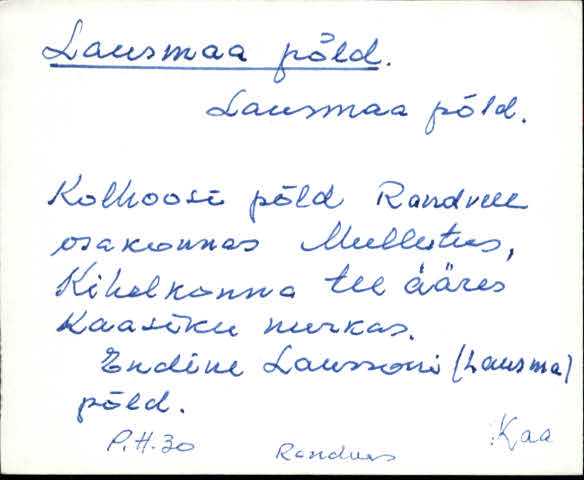 Lausmaa põld.
Lausmaa põld.
Kolhoosi põld Randvere
osakonnas Mullutus,
Kihelkonna tee ääres
Kaasiku nurkas.
Endine Laussoni (Lausma)
põld.
P.H.30 Randvere Kaa